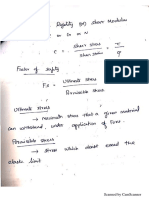 Rigidity (or) Shear Modulus
C = Shear stress / Shear strain = τ / φ
Factor of safety
F.s = Ultimate stress / Permissible stress
Ultimate stress
→ maximum stress that a given material
can withstand, under application of force.
Permissible stress
→ stress which doesnot exceed the
elastic limit
Scanned by CamScanner